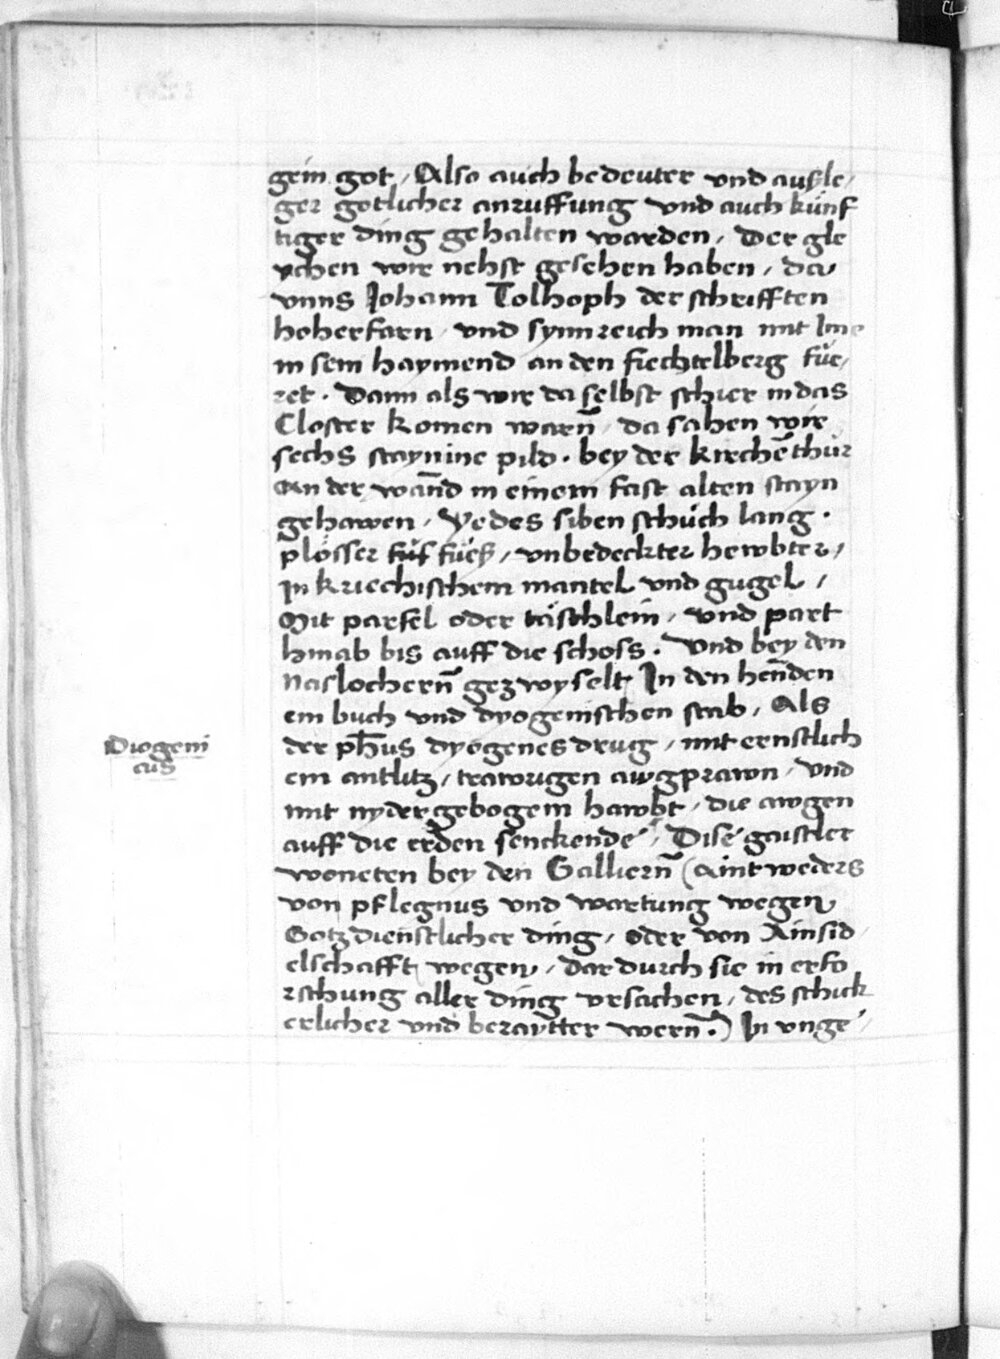 gein got, Also auch bedeuter vnd außle,
ger gotlicher anruffung vnd auch künf
tiger ding gehalten warden, Der gle
ychen wir nehst gesehen haben, da
vnns Johann Tolhoph der schrifften
hoherfarn vnd synnreich man mit Ime
in sein haymend an den fiechtelberg füe,
ret. Dann als wir da selbst schier in das
Closter komen warn̄, da sahen wir
sechs staynine pild. bey der kirchē thür
an der wānd in einem fast alten stayn
gehawen, Yedes siben schüch lang.
plösser füß, vnbedeckter hewbter,
In kriechischem mantel vnd gugel,
Mit parsel oder täschlein, vnd part
hinab bis auff die schoss. Vnd bey den
naslochern̄ gezwyselt, In den hēnden
ein buch vnd dyogenischen stab, Als
Diogeni
cus
der ph̄us dyogenes drug, mit ernstlich
em antlitz, trawrigen awgprawn, vnd
mit nydergebogem hawbt, die awgen
auff die erden senckende, Dise gaistler
woneten bey den Galliern̄ (Aintweders
von pflegnus vnd wartung wegen
Gotzdienstlicher ding, oder von Ainsid
elschafft wegen, dar durch sie in erfo
rschung aller ding vrsachen, des schick
erlicher vnd beraytter wern̄.) In vnge